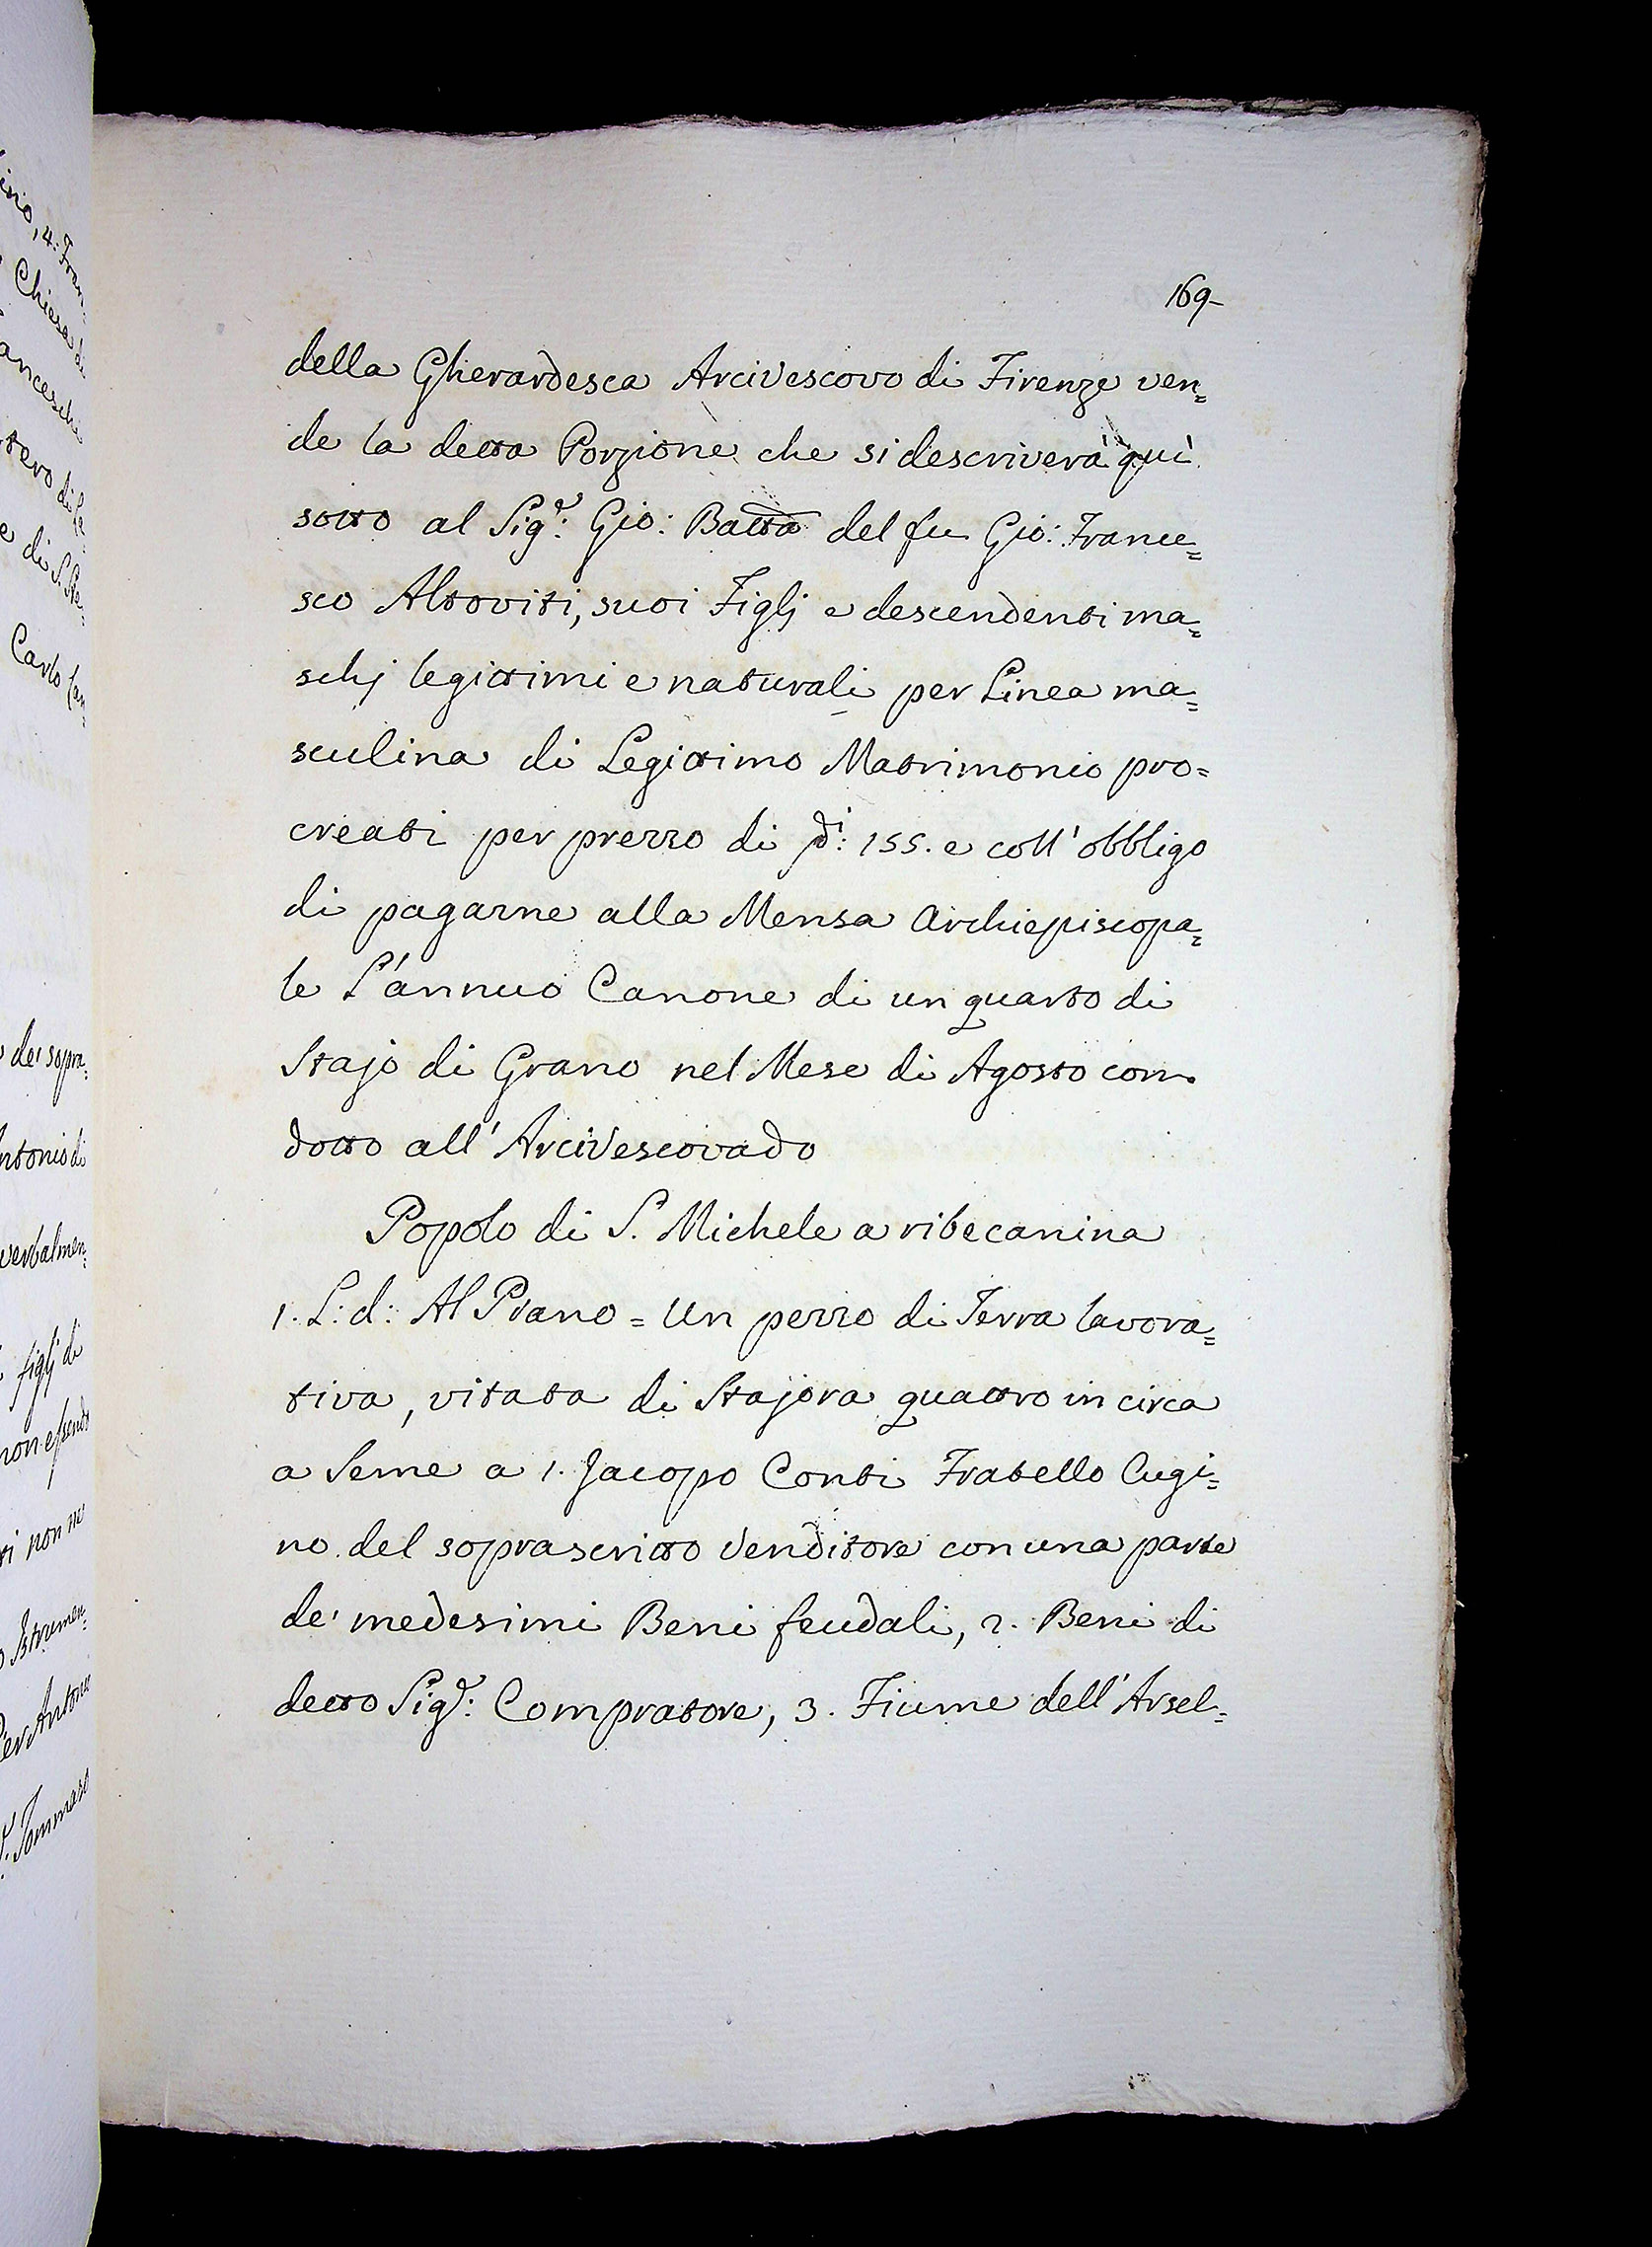 169-
della Gherardesca Arcivescovo di Firenze ven=
de la detta Porzione che si descriverà quì
sotto al Sig.e: Gio: Batta del fu Gio: France=
sco Altoviti, suoi Figlj e descendenti ma=
schj legittimi e naturali per Linea ma=
sculina di Legittimo Matrimonio pro=
creati per prezzo di 155. e coll'obbligo
di pagarne alla Mensa Archiepiscopa=
le L'annuo Canone di un quarto di
Stajo di Grano nel Mese di Agosto con
dotto all'Arcivescovado
Popolo di S. Michele a ribecanina
1. L: d: Al Piano = Un pezzo di Terra lavora=
tiva, vitata di Stajora quattro in circa
a Seme a 1. Jacopo Conti Fratello Cugi=
no del soprascritto Venditore con una parte
de' medesimi Beni feudali, 2. Beni di
detto Sig.e: Compratore, 3. Fiume dell'Arsel=
ino, 4:
Chiesa di
anceschi
tero di
e di S. Ste=
Carlo
dei sopra=
ntonio di
verbalmen=
figlj di
non essendo
ti non ne
Istrumen=
Pier Antonio
Tommaso